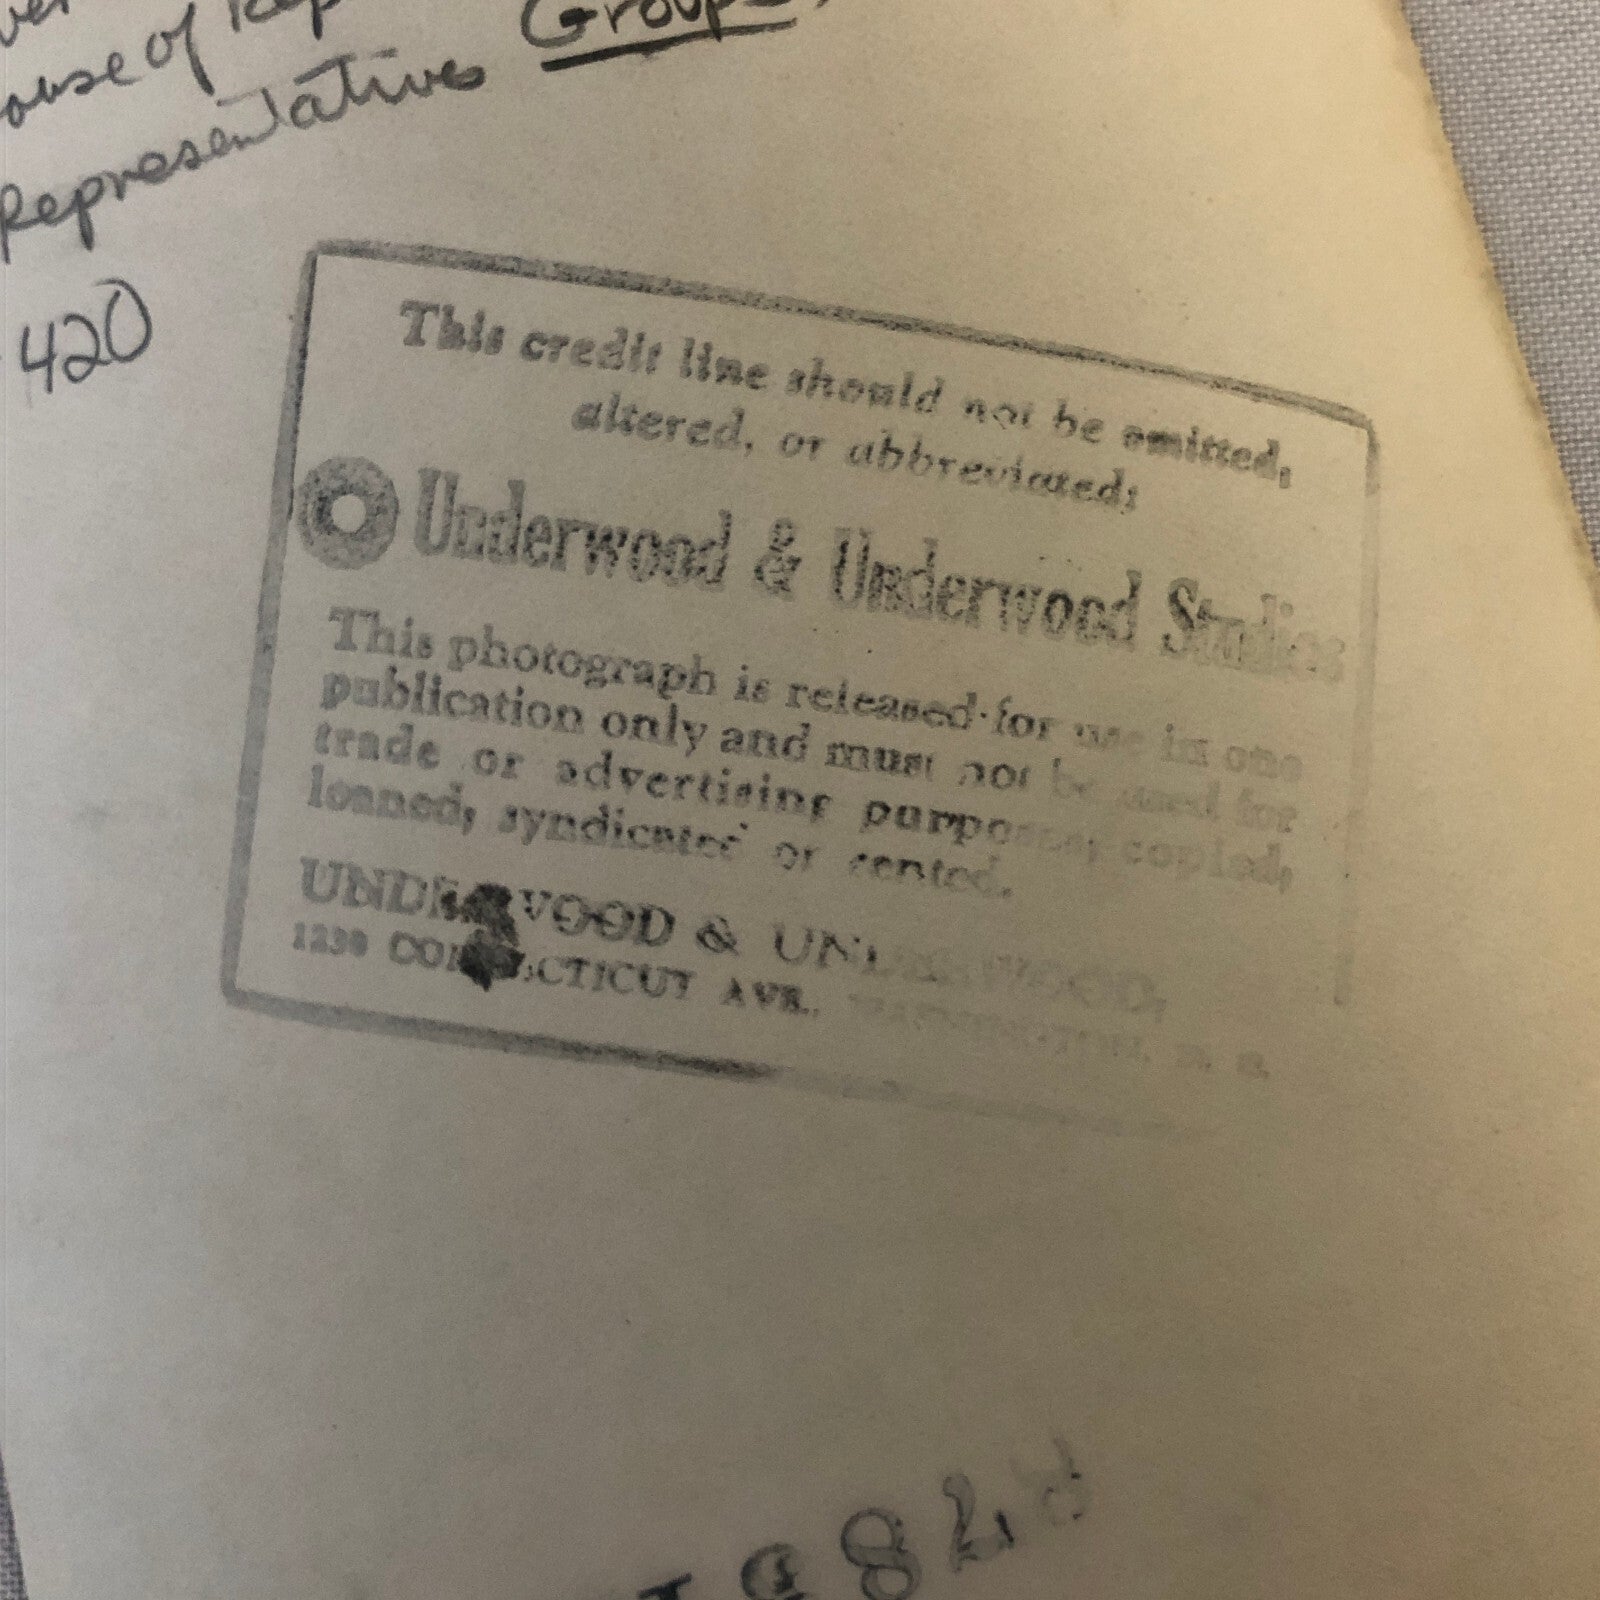 ouse of Rep
Representatives Groups
420
This credit line should not be omitted,
altered, or abbreviated;
Underwood & Underwood Studios
This photograph is released for use in one
publication only and must not be used for
trade or advertising purposes, copied,
loaned, syndicated or rented.
UNDERWOOD & UNDERWOOD,
1230 CONNECTICUT AVE., WASHINGTON, D. C.